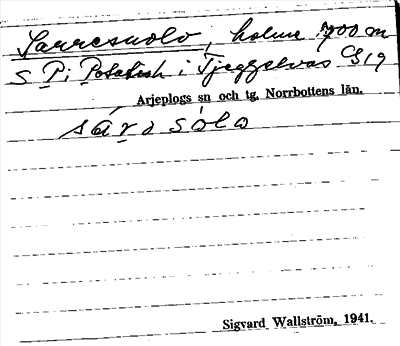 Sarresuolo, holme 700 m
S P i Potatish i Tjeggelvas C919
Arjeplogs sn och tg, Norrbottens län.
sáro sòlo
Sigvard Wallström, 1941.